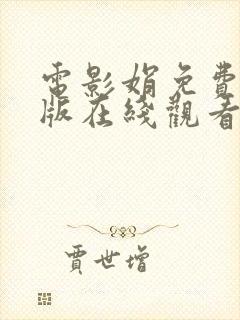 電影娟免費
版在綫觀看
賈世增